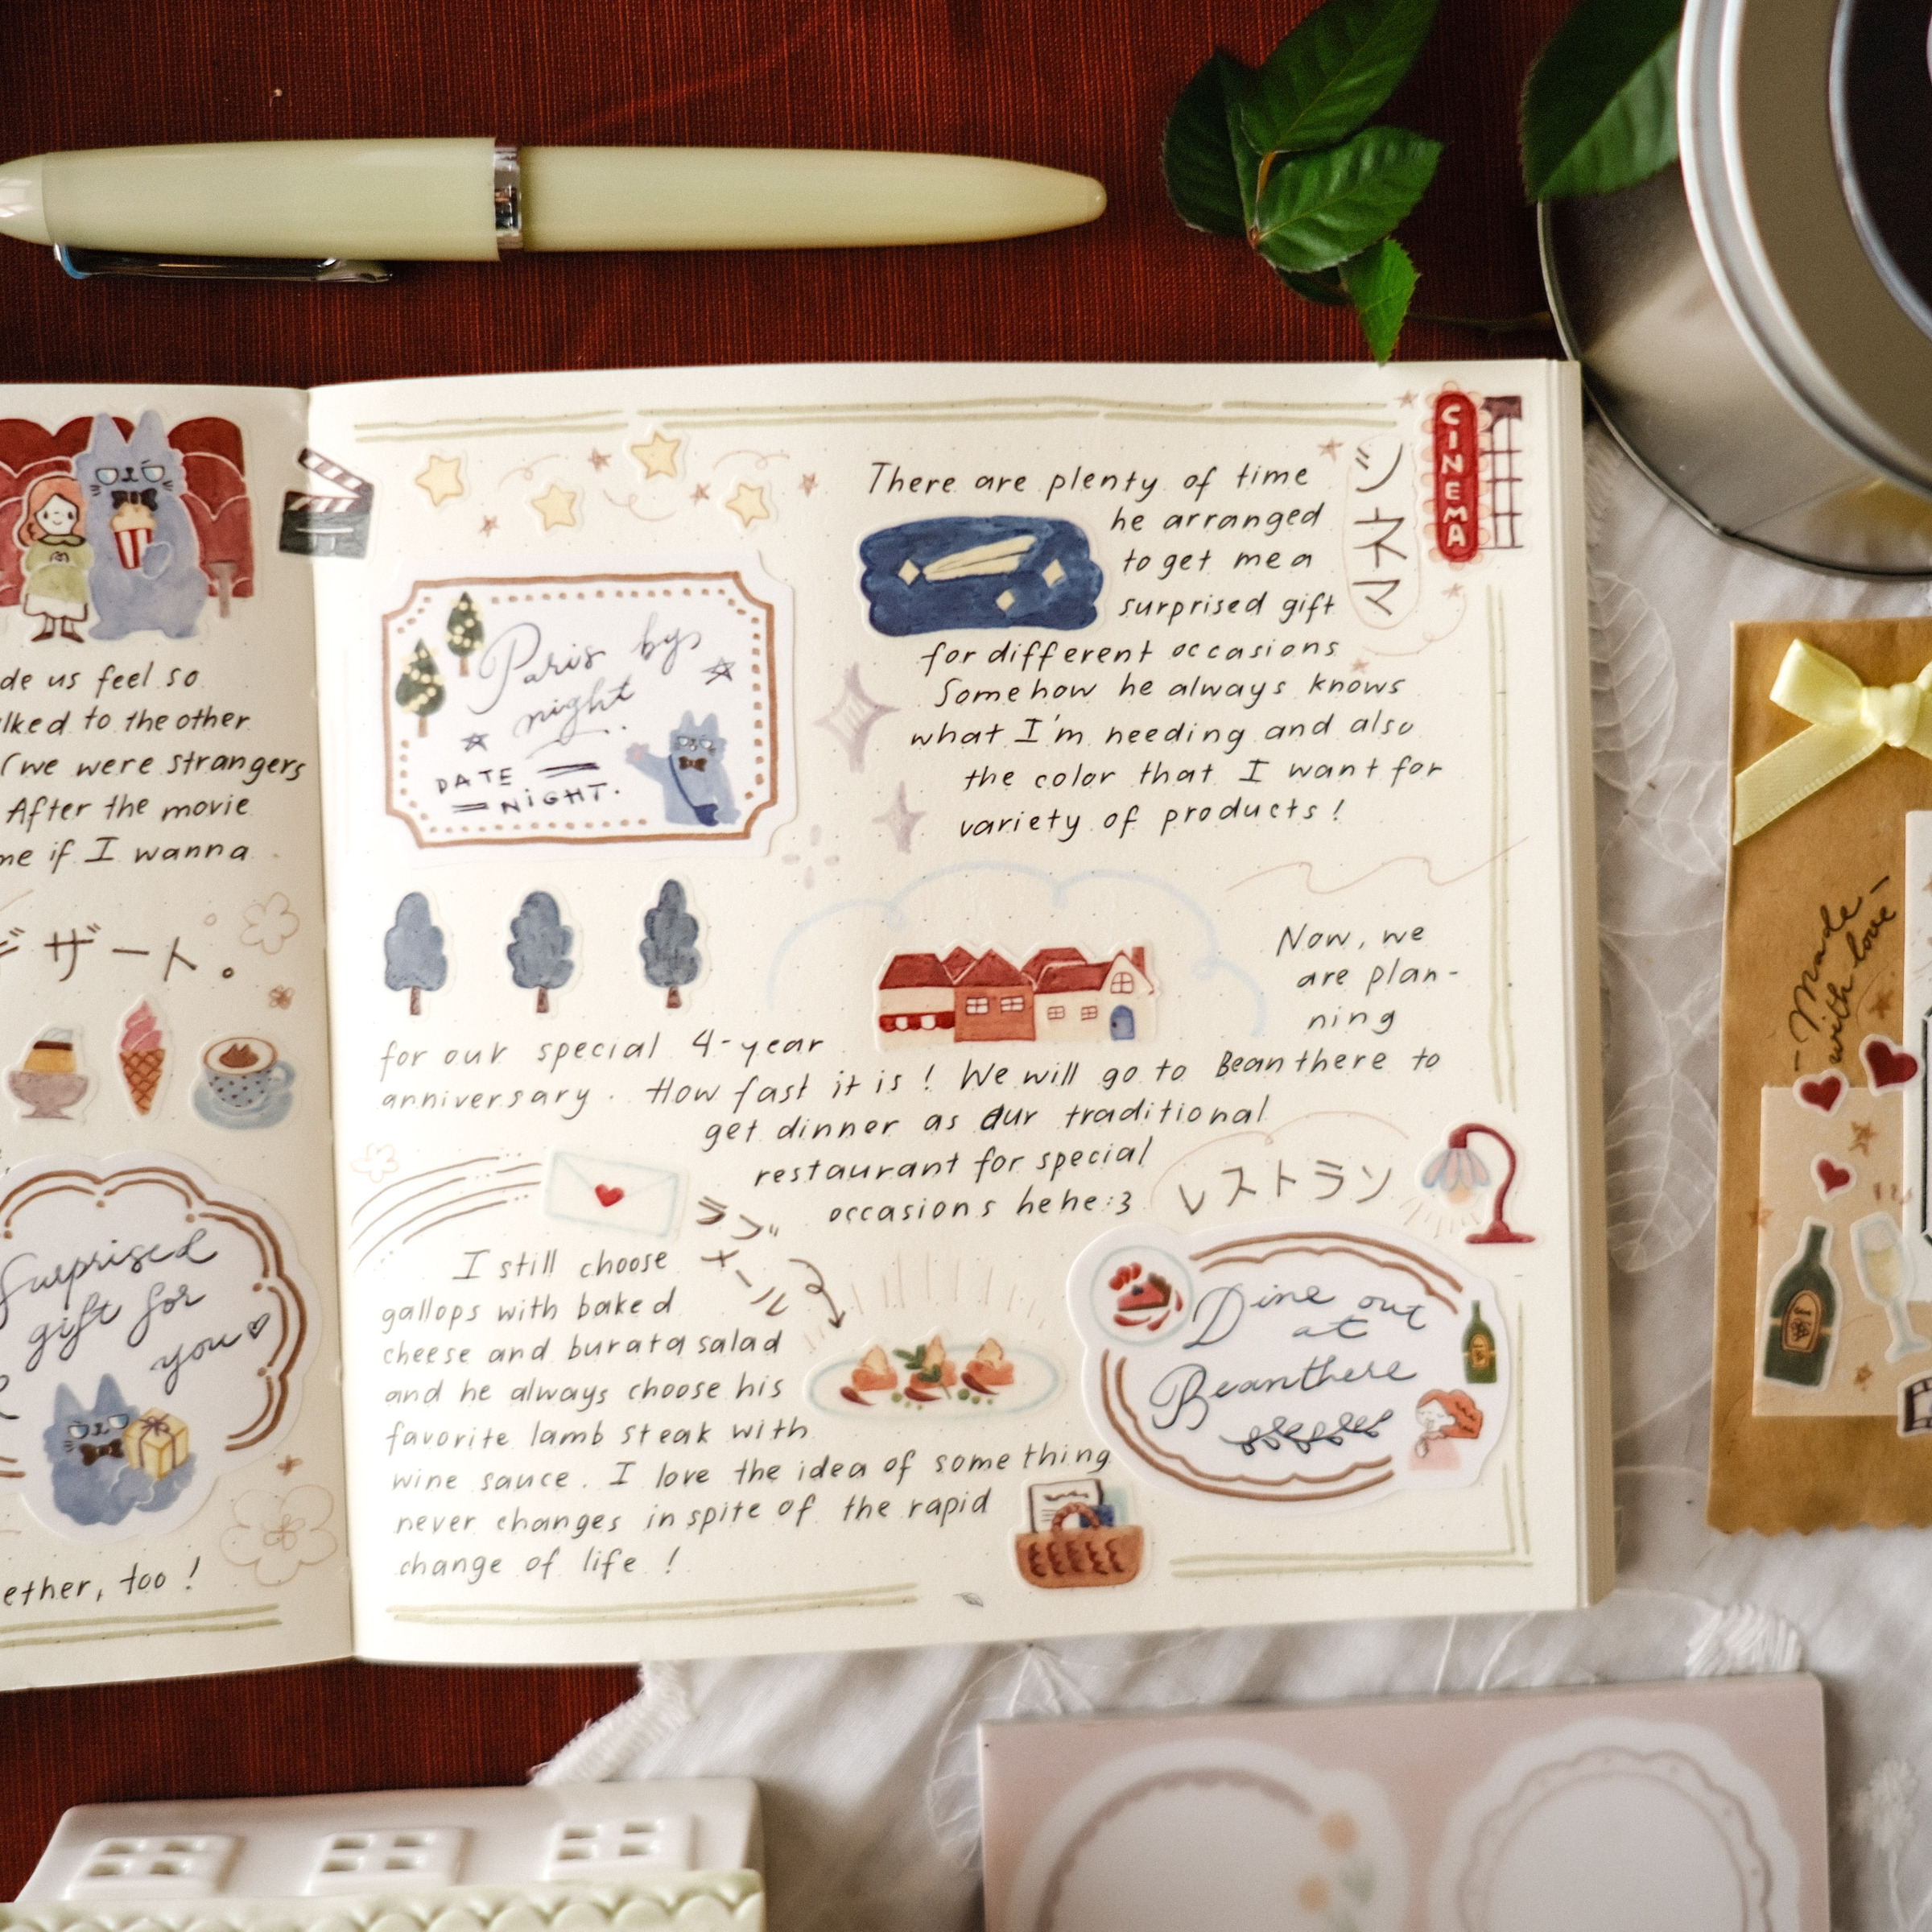 de us feel so
lked to the other
(we were strangers
After the movie
me if I wanna
デザート。
Surprised
gift for
you
ether, too !
Paris by
night
DATE
NIGHT.
There are plenty of time
he arranged
to get me a
surprised gift
for different occasions
Somehow he always knows
what I'm needing and also
the color that I want for
variety of products !
シネマ
CINEMA
Now, we
are plan-
ning
for our special 4-year
anniversary. How fast it is ! We will go to Beanthere to
get dinner as our traditional
restaurant for special
occasions hehe :3
レストラン
ラブ
メール
I still choose
gallops with baked
cheese and burata salad
and he always choose his
favorite lamb steak with
wine sauce. I love the idea of something
never changes inspite of the rapid
change of life !
Dine out
at
Beanthere
- Made -
with love